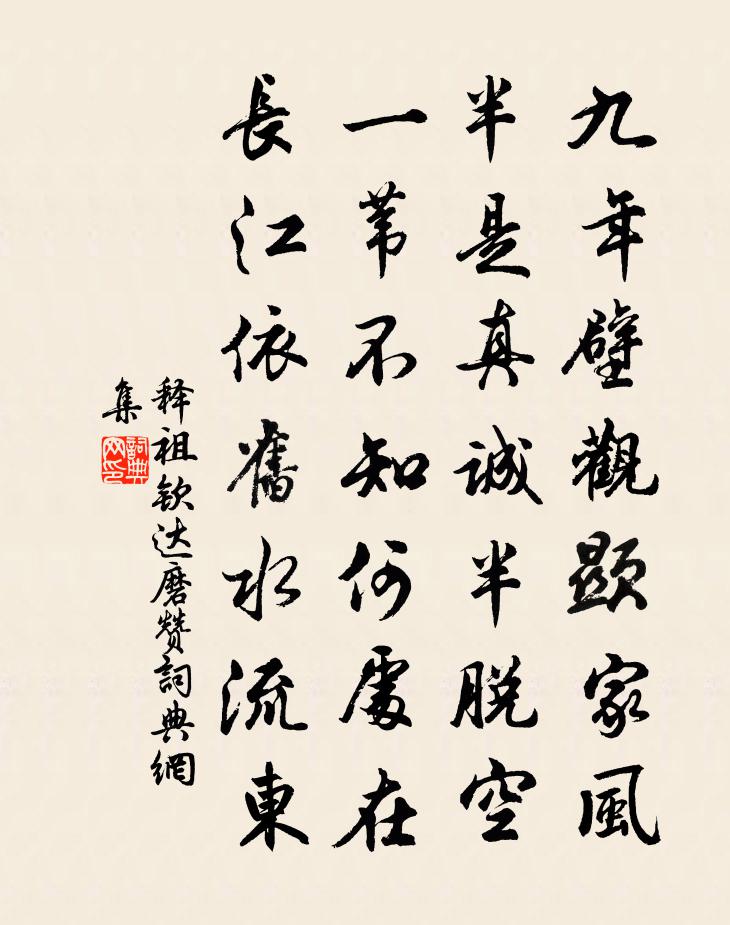 九年壁觀顯家風
半是真誠半脫空
一苇不知何處在
長江依舊水流東
释祖钦达磨赞詞典網
集
詞典
网印